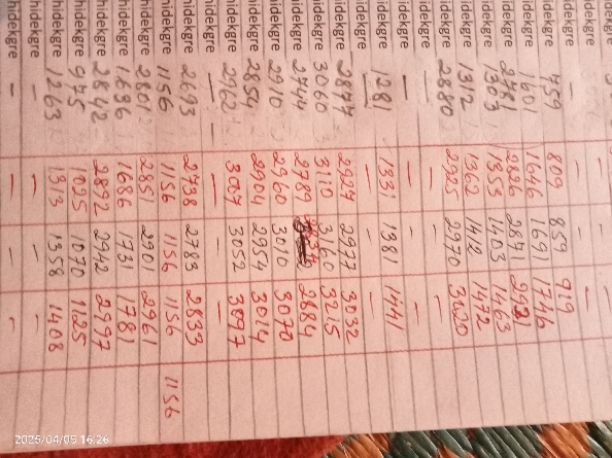 hidekgre
hidekgre —
hidekgre 759 809 859 919
hidekgre 1601 1646 1691 1746
hidekgre 2781 2826 2871 2921
hidekgre 1303 1353 1403 1463
hidekgre 1312 1362 1412 1472
hidekgre 2880 2925 2970 3020
hidekgre — — — —
hidekgre 1281 1331 1381 1441
hidekgre — — — —
hidekgre 2877 2927 2977 3032
hidekgre 3060 3110 3160 3215
hidekgre 2744 2789 2834 2884
hidekgre 2910 2960 3010 3070
hidekgre 2854 2904 2954 3014
hidekgre 2962 3007 3052 3097
hidekgre — — — —
hidekgre 2693 2738 2783 2833
hidekgre 1156 1156 1156 1156 1156
hidekgre 2801 2851 2901 2961
hidekgre 1636 1686 1731 1781
hidekgre 2842 2892 2942 2997
hidekgre 975 1025 1070 1125
hidekgre 1263 1313 1358 1408
hidekgre — — — —
2025/04/05 16:26